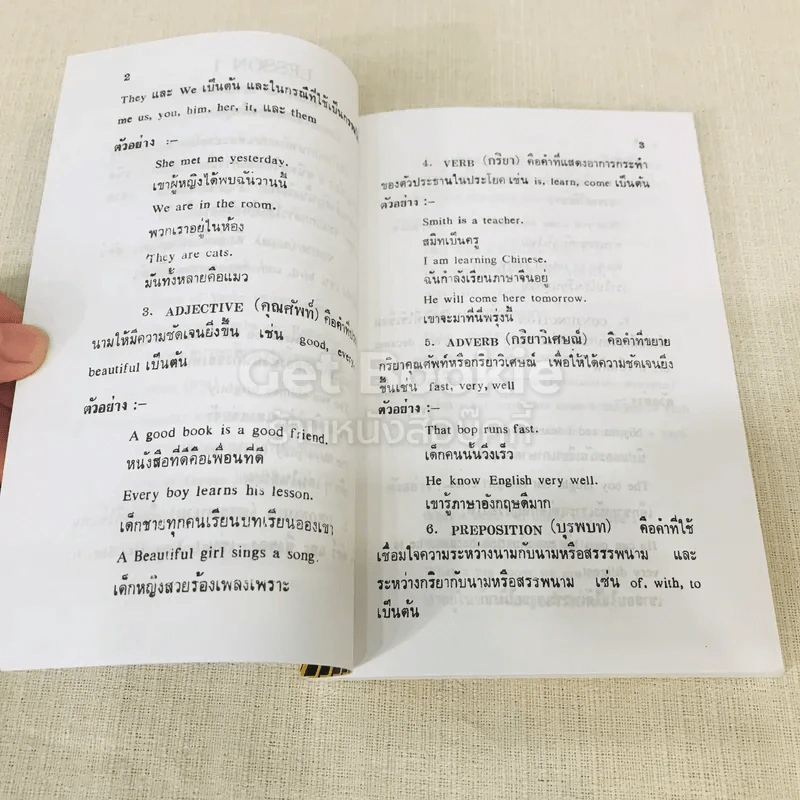 2
They และ We เป็นต้น และในกรณีที่ใช้เป็นกรรม
me us, you, him, her, it, และ them
ตัวอย่าง :-
She met me yesterday.
เขาผู้หญิงได้พบฉันวานนี้
We are in the room.
พวกเราอยู่ในห้อง
They are cats.
มันทั้งหลายคือแมว
3. ADJECTIVE (คุณศัพท์) คือคำที่
นามให้มีความชัดเจนยิ่งขึ้น เช่น good, every,
beautiful เป็นต้น
ตัวอย่าง :-
A good book is a good friend.
หนังสือที่ดีคือเพื่อนที่ดี
Every boy learns his lesson.
เด็กชายทุกคนเรียนบทเรียนของเขา
A Beautiful girl sings a song.
เด็กหญิงสวยร้องเพลงเพราะ
3
4. VERB (กริยา) คือคำที่แสดงอาการกระทำ
ของตัวประธานในประโยค เช่น is, learn, come เป็นต้น
ตัวอย่าง :-
Smith is a teacher.
สมิทเป็นครู
I am learning Chinese.
ฉันกำลังเรียนภาษาจีนอยู่
He will come here tomorrow.
เขาจะมาที่นี่พรุ่งนี้
5. ADVERB (กริยาวิเศษณ์) คือคำที่ขยาย
กริยาคุณศัพท์หรือกริยาวิเศษณ์ เพื่อให้ได้ความชัดเจนยิ่ง
ขึ้นเช่น fast, very, well
ตัวอย่าง :-
That bop runs fast.
เด็กคนนั้นวิ่งเร็ว
He know English very well.
เขารู้ภาษาอังกฤษดีมาก
6. PREPOSITION (บุรพบท) คือคำที่ใช้
เชื่อมใจความระหว่างนามกับนามหรือสรรพนาม และ
ระหว่างกริยากับนามหรือสรรพนาม เช่น of, with, to
เป็นต้น
Get Bookie
ร้านหนังสือบุ๊กกี้